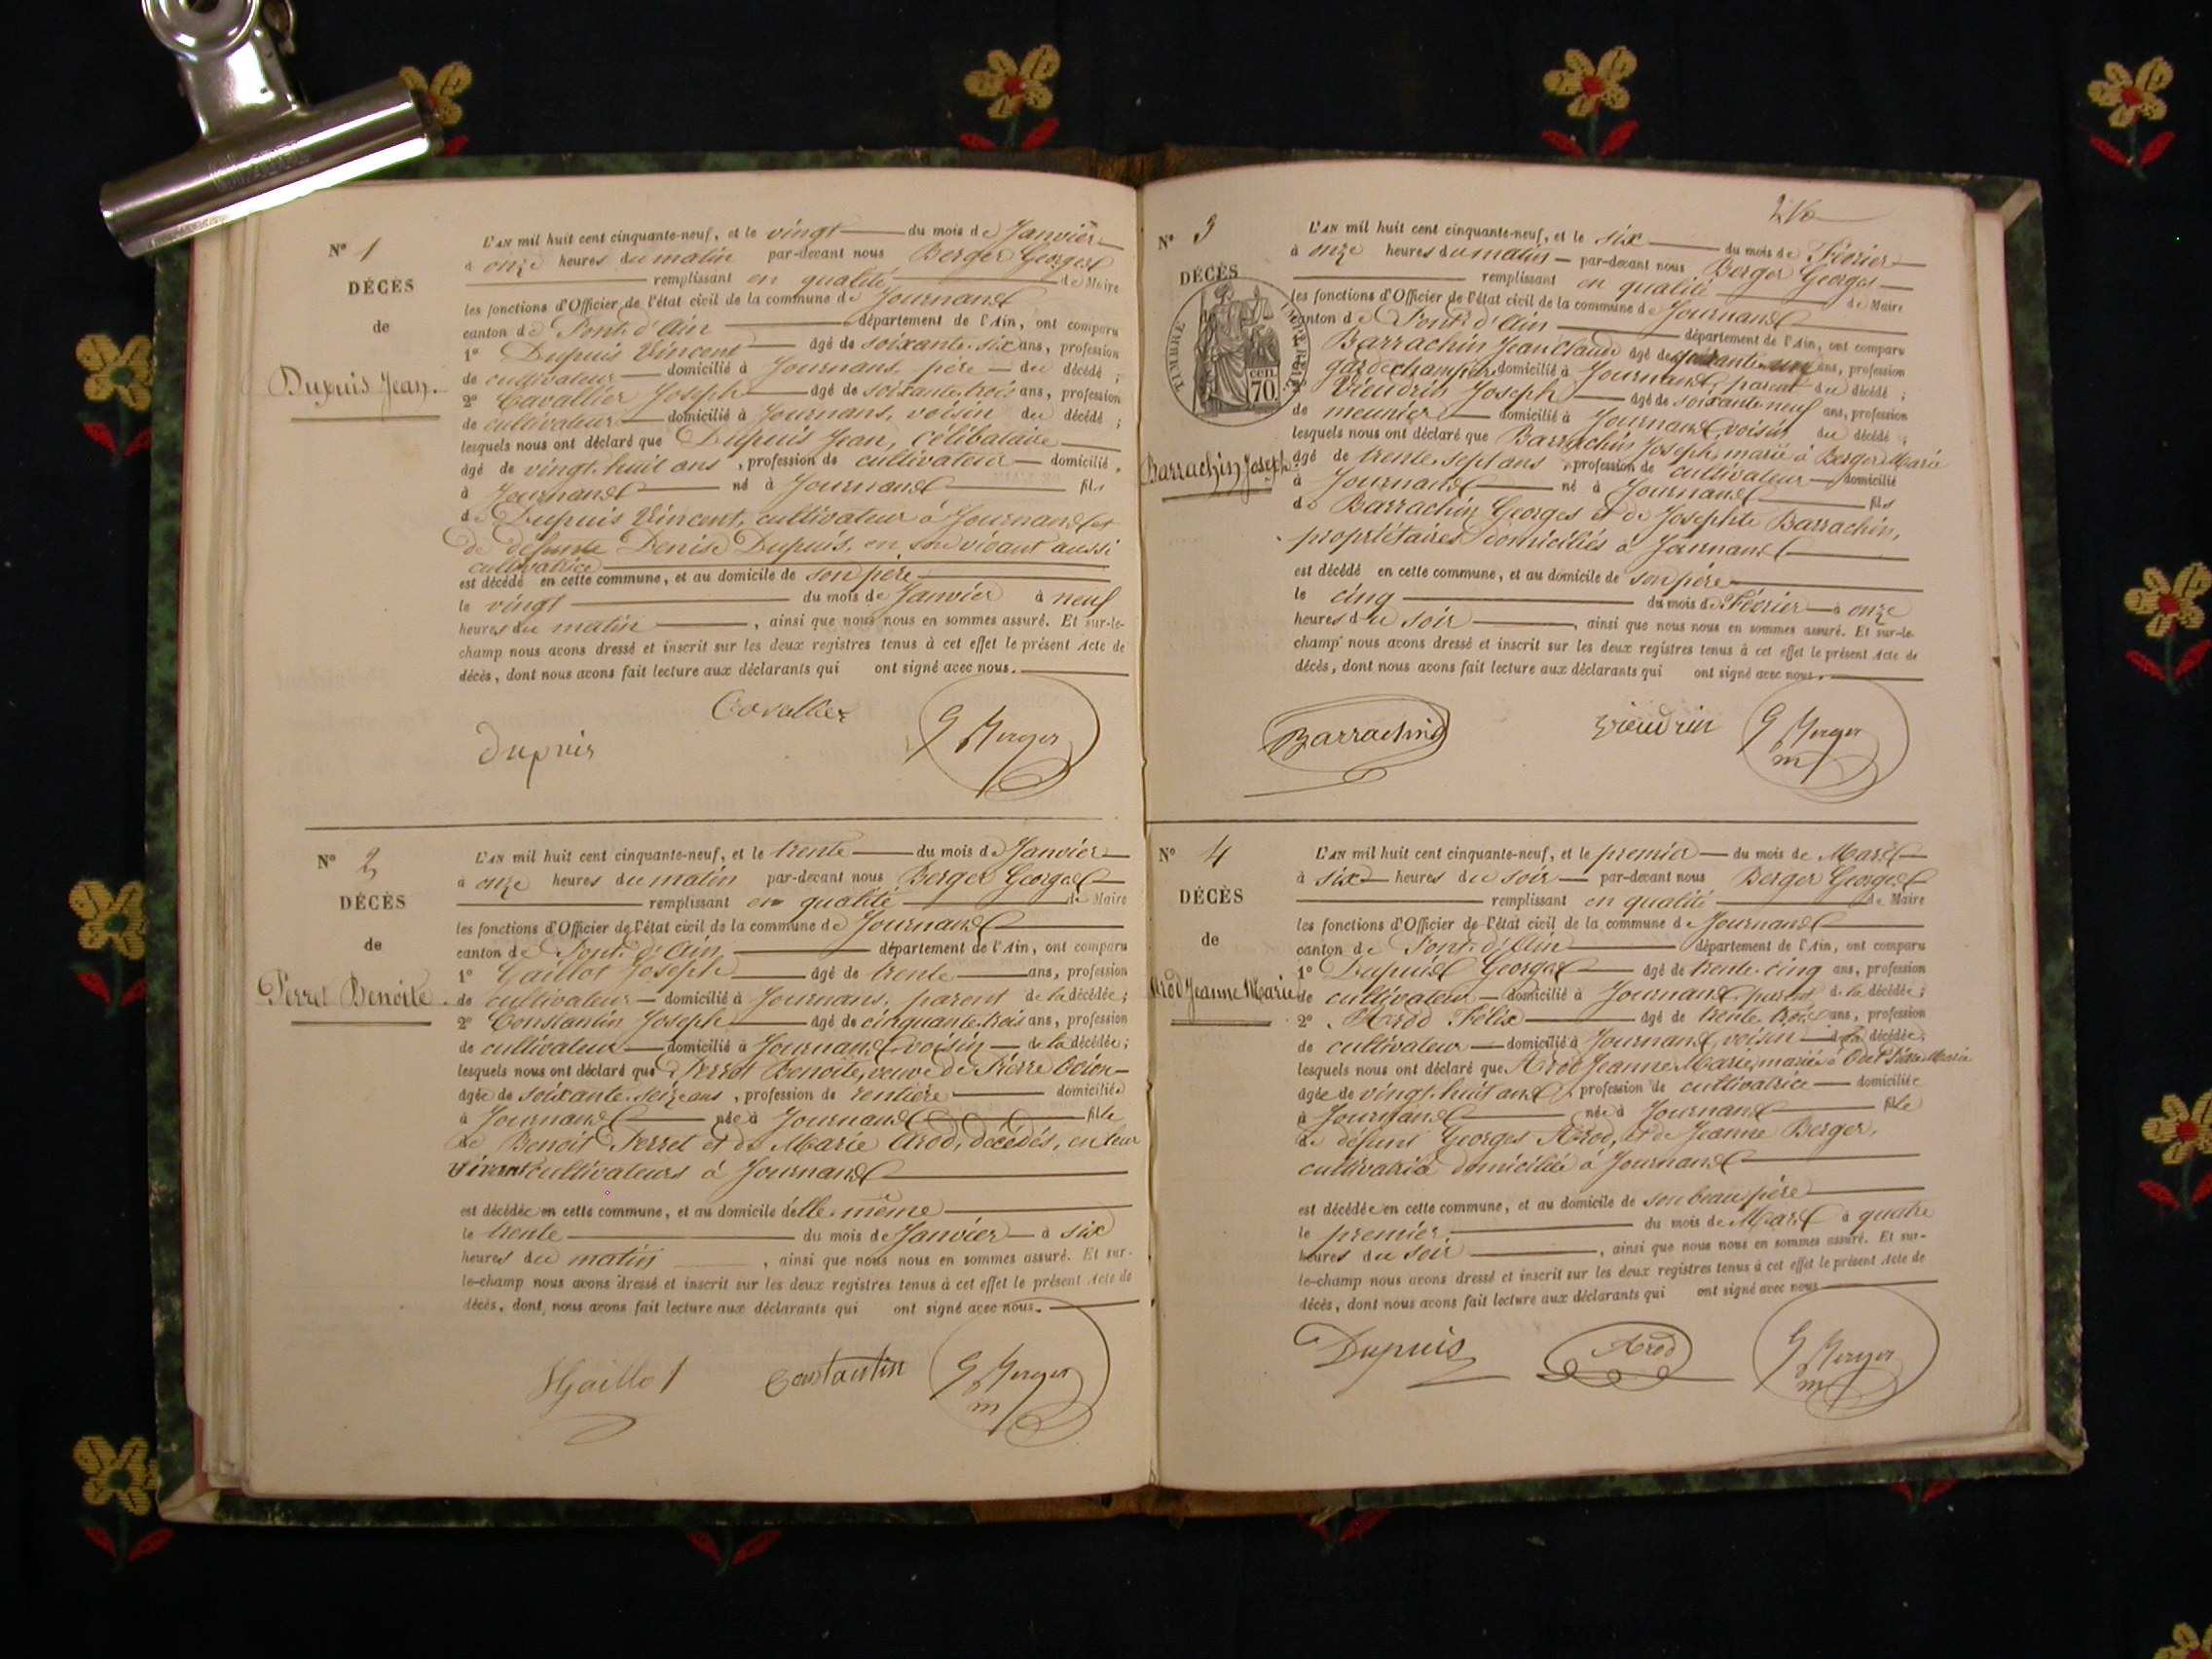 N° 1
DÉCÈS
de
Dupuis Jean.
L'AN mil huit cent cinquante-neuf, et le vingt du mois de Janvier
à onze heures du matin par-devant nous Berger Georges
remplissant en qualité de Maire
les fonctions d'Officier de l'état civil de la commune de Journans
canton de Pont-d'Ain département de l'Ain, ont comparu
1° Dupuis Vincent âgé de soixante-six ans, profession
de cultivateur domicilié à Journans, père du décédé ;
2° Cavallier Joseph âgé de soixante-trois ans, profession
de cultivateur domicilié à Journans, voisin du décédé ;
lesquels nous ont déclaré que Dupuis Jean, célibataire
âgé de vingt-huit ans, profession de cultivateur domicilié
à Journans né à Journans fils
de Dupuis Vincent, cultivateur à Journans et
de défunte Denise Dupuis, en son vivant aussi
cultivatrice
est décédé en cette commune, et au domicile de son père
le vingt du mois de Janvier à neuf
heures du matin, ainsi que nous nous en sommes assuré. Et sur-le-
champ nous avons dressé et inscrit sur les deux registres tenus à cet effet le présent Acte de
décès, dont nous avons fait lecture aux déclarants qui ont signé avec nous.
Cavallier
Dupuis
G Berger
N° 2
DÉCÈS
de
Perret Benoite.
L'AN mil huit cent cinquante-neuf, et le trente du mois de Janvier
à onze heures du matin par-devant nous Berger Georges
remplissant en qualité de Maire
les fonctions d'Officier de l'état civil de la commune de Journans
canton de Pont-d'Ain département de l'Ain, ont comparu
1° Gaillot Joseph âgé de trente ans, profession
de cultivateur domicilié à Journans, parent de la décédée ;
2° Constantin Joseph âgé de cinquante-trois ans, profession
de cultivateur domicilié à Journans voisin de la décédée ;
lesquels nous ont déclaré que Perret Benoite, veuve de Pierre
âgée de soixante-seize ans, profession de rentière domiciliée
à Journans née à Journans fille
de Benoit Perret et de Marie Arod, décédés, en leur
vivant cultivateurs à Journans
est décédée en cette commune, et au domicile d'elle-même
le trente du mois de Janvier à six
heures du matin, ainsi que nous nous en sommes assuré. Et sur-
le-champ nous avons dressé et inscrit sur les deux registres tenus à cet effet le présent Acte de
décès, dont nous avons fait lecture aux déclarants qui ont signé avec nous.
Gaillot Constantin G Berger
m
N° 3
DÉCÈS
de
TIMBRE IMPÉRIAL
70 cen
Barrachin Joseph.
L'AN mil huit cent cinquante-neuf, et le six du mois de Février
à onze heures du matin par-devant nous Berger Georges
remplissant en qualité de Maire
les fonctions d'Officier de l'état civil de la commune de Journans
canton de Pont-d'Ain département de l'Ain, ont comparu
Barrachin Jean Claude âgé de quarante-un ans, profession
garde champêtre domicilié à Journans, parent du décédé ;
Vieudrin Joseph âgé de soixante-neuf ans, profession
de meunier domicilié à Journans voisin du décédé ;
lesquels nous ont déclaré que Barrachin Joseph, marié à Berger Marie
âgé de trente-sept ans profession de cultivateur domicilié
à Journans né à Journans fils
de Barrachin Georges et de Josephte Barrachin,
propriétaires domiciliés à Journans
est décédé en cette commune, et au domicile de son père
le cinq du mois de Février à onze
heures du soir, ainsi que nous nous en sommes assuré. Et sur-le-
champ nous avons dressé et inscrit sur les deux registres tenus à cet effet le présent Acte de
décès, dont nous avons fait lecture aux déclarants qui ont signé avec nous.
Barrachin Vieudrin G Berger
m
N° 4
DÉCÈS
de
Arod Jeanne Marie
L'AN mil huit cent cinquante-neuf, et le premier du mois de Mars
à six heures du soir par-devant nous Berger Georges
remplissant en qualité de Maire
les fonctions d'Officier de l'état civil de la commune de Journans
canton de Pont-d'Ain département de l'Ain, ont comparu
1° Dupuis Georges âgé de trente-cinq ans, profession
de cultivateur domicilié à Journans parent de la décédée ;
2° Arod Félix âgé de trente-trois ans, profession
de cultivateur domicilié à Journans, voisin de la décédée ;
lesquels nous ont déclaré que Arod Jeanne Marie, mariée à Pierre Marie
âgée de vingt-huit ans, profession de cultivatrice domiciliée
à Journans née à Journans fille
de défunt Georges Arod, et de Jeanne Berger,
cultivatrice domiciliée à Journans
est décédée en cette commune, et au domicile de son beau-père
le premier du mois de Mars à quatre
heures du soir, ainsi que nous nous en sommes assuré. Et sur-
le-champ nous avons dressé et inscrit sur les deux registres tenus à cet effet le présent Acte de
décès, dont nous avons fait lecture aux déclarants qui ont signé avec nous
Dupuis Arod G Berger
m